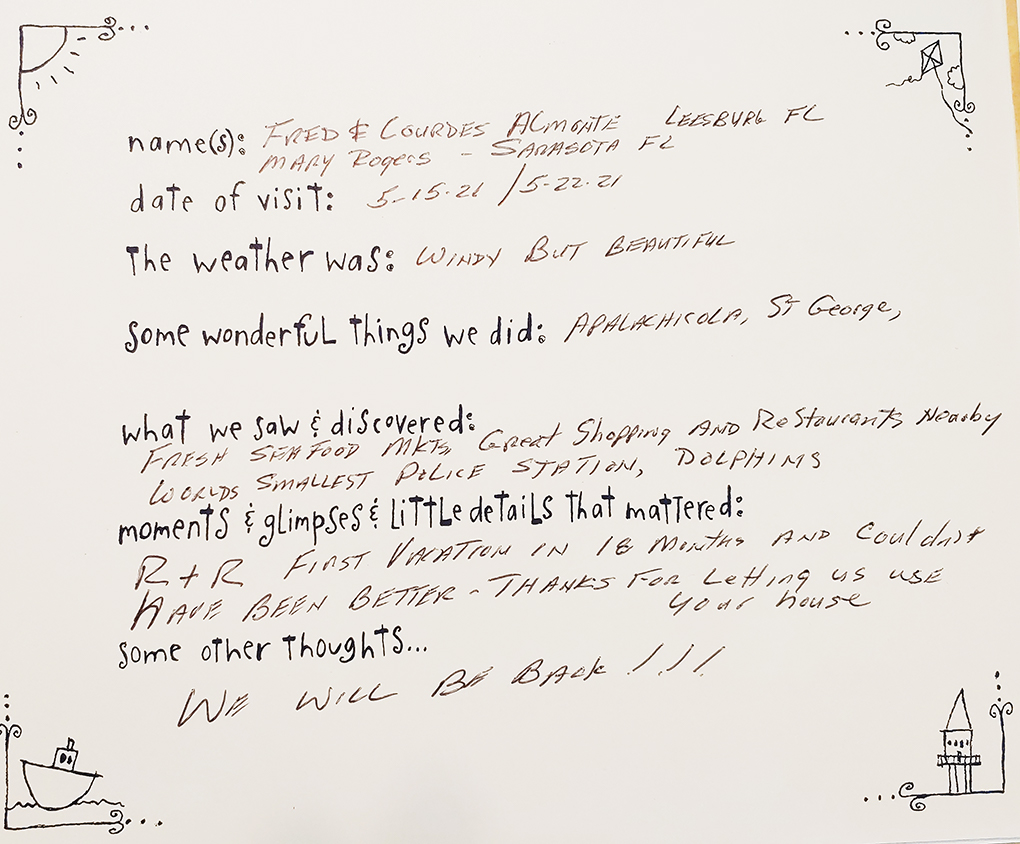 name(s): FRED & LOURDES ALMONTE LEESBURG FL
MARY Rogers - SARASOTA FL
date of visit: 5-15-21 / 5-22-21
The weather was: WINDY BUT BEAUTIFUL
some wonderful things we did: APALACHICOLA, ST George,
what we saw & discovered:
FRESH SEAFOOD MKTS, Great Shopping AND Restaurants Nearby
WORLDS SMALLEST POLICE STATION, DOLPHINS
moments & glimpses & little details that mattered:
R + R FIRST VACATION IN 18 MONTHS AND Couldn't
HAVE BEEN BETTER - THANKS FOR Letting us use
your house
some other thoughts...
WE WILL BE BACK !!!